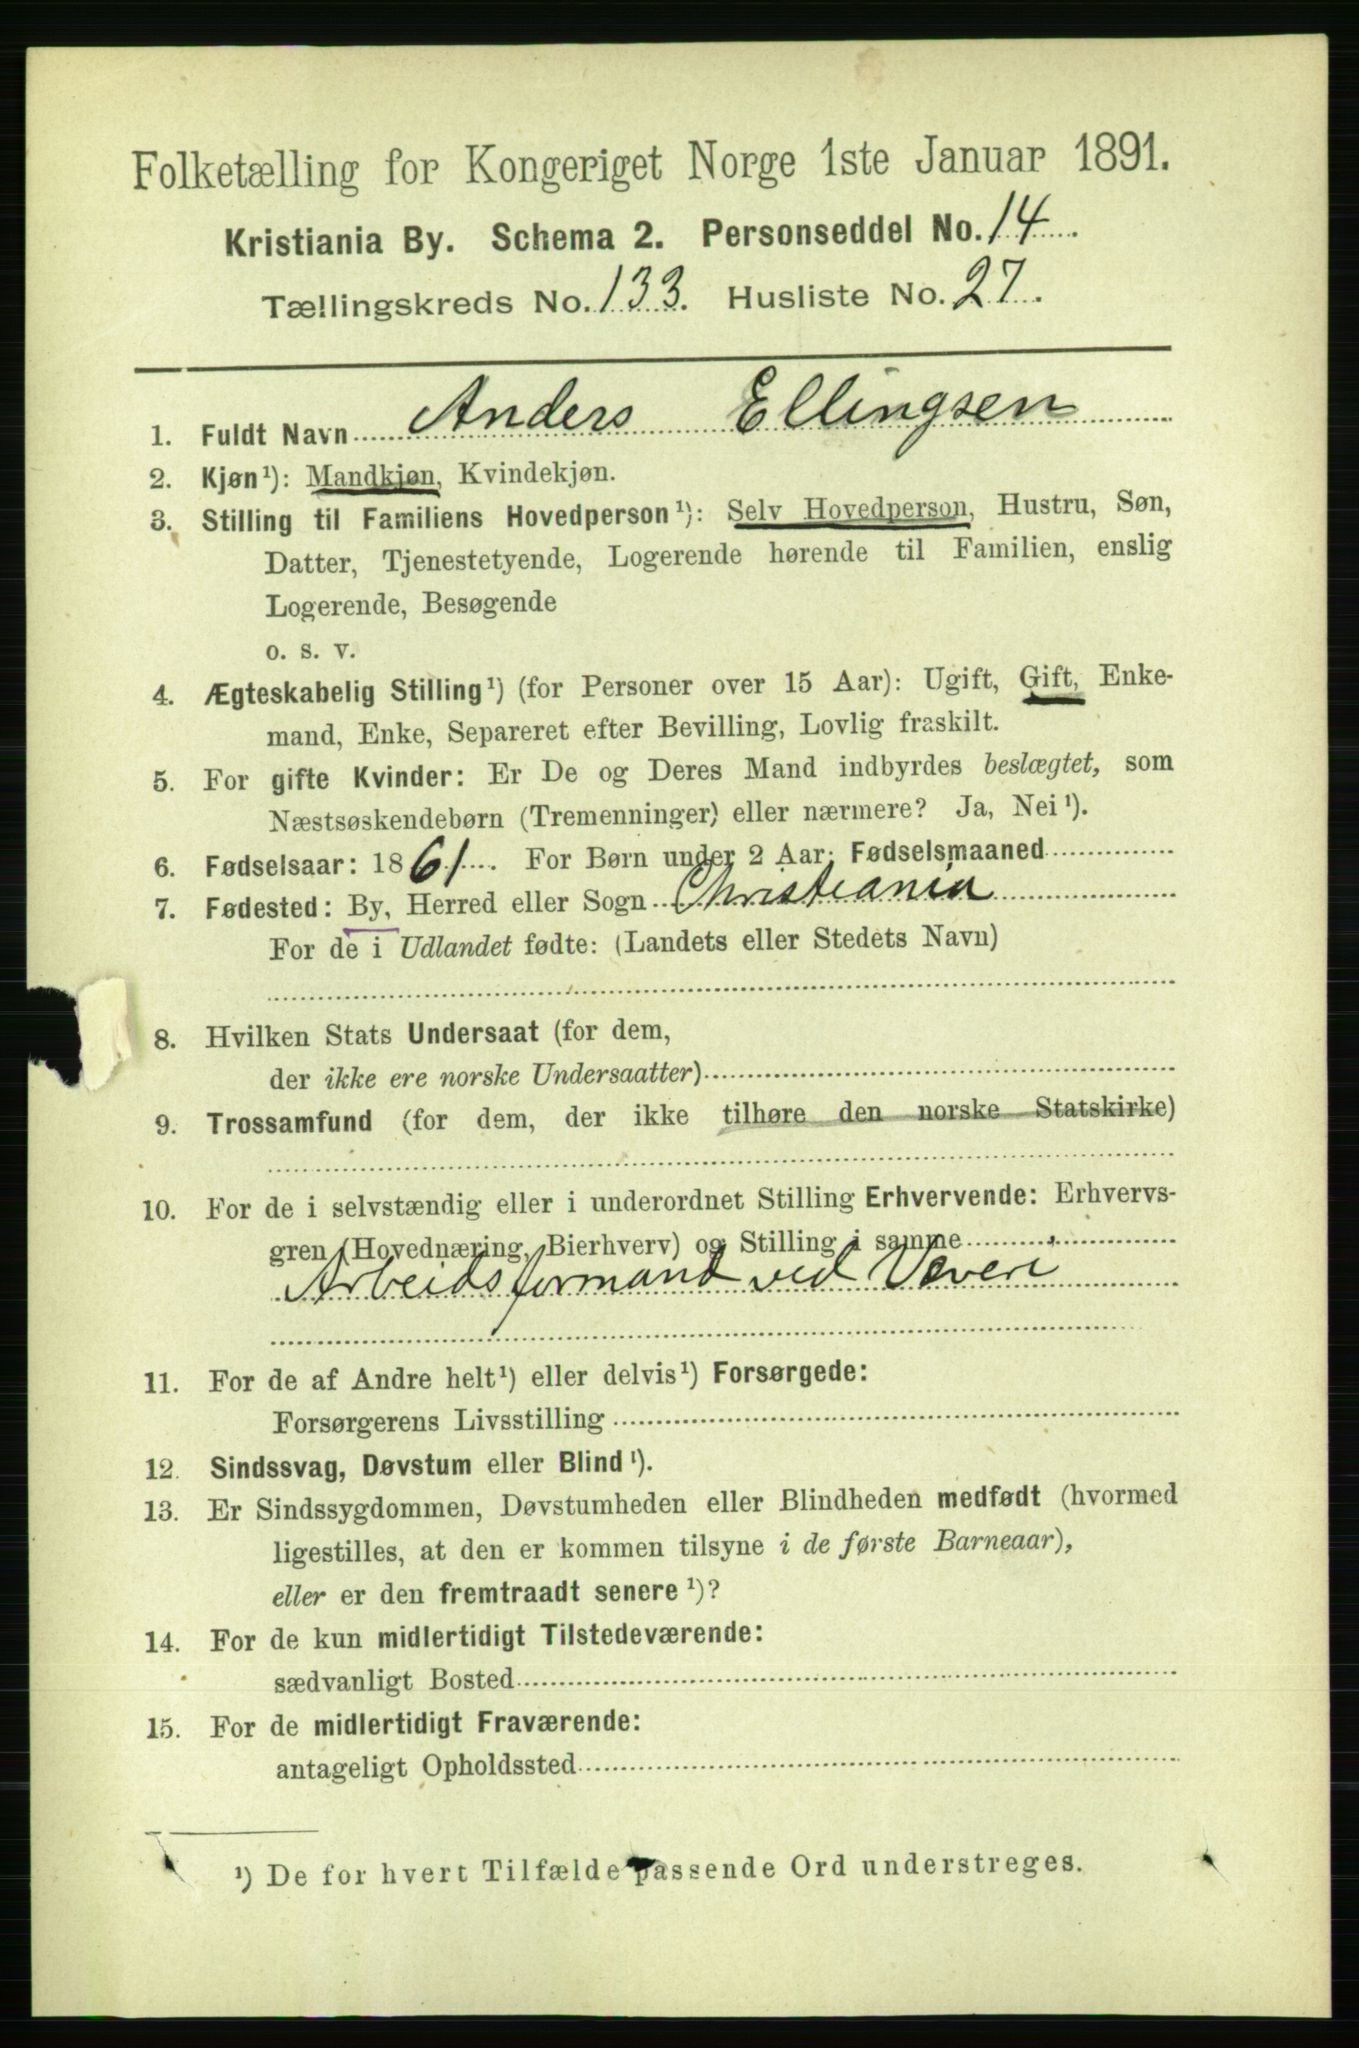 Folketælling for Kongeriget Norge 1ste Januar 1891.
Kristiania By. Schema 2. Personseddel No. 14
Tællingskreds No. 133. Husliste No. 27.
1. Fuldt Navn Anders Ellingsen
2. Kjøn¹): Mandkjøn, Kvindekjøn.
3. Stilling til Familiens Hovedperson¹): Selv Hovedperson, Hustru, Søn,
Datter, Tjenestetyende, Logerende hørende til Familien, enslig
Logerende, Besøgende
o. s. v.
4. Ægteskabelig Stilling¹) (for Personer over 15 Aar): Ugift, Gift, Enke-
mand, Enke, Separeret efter Bevilling, Lovlig fraskilt.
5. For gifte Kvinder: Er De og Deres Mand indbyrdes beslægtet, som
Næstsøskendebørn (Tremenninger) eller nærmere? Ja, Nei¹).
6. Fødselsaar: 1861. For Børn under 2 Aar: Fødselsmaaned
7. Fødested: By, Herred eller Sogn Christiania
For de i Udlandet fødte: (Landets eller Stedets Navn)
8. Hvilken Stats Undersaat (for dem,
der ikke ere norske Undersaatter)
9. Trossamfund (for dem, der ikke tilhøre den norske Statskirke)
10. For de i selvstændig eller i underordnet Stilling Erhvervende: Erhvervs-
gren (Hovednæring, Bierhverv) og Stilling i samme
Arbeidsformand ved Væveri
11. For de af Andre helt¹) eller delvis¹) Forsørgede:
Forsørgerens Livsstilling
12. Sindssvag, Døvstum eller Blind¹).
13. Er Sindssygdommen, Døvstumheden eller Blindheden medfødt (hvormed
ligestilles, at den er kommen tilsyne i de første Barneaar),
eller er den fremtraadt senere¹)?
14. For de kun midlertidigt Tilstedeværende:
sædvanligt Bosted
15. For de midlertidigt Fraværende:
antageligt Opholdssted
¹) De for hvert Tilfælde passende Ord understreges.